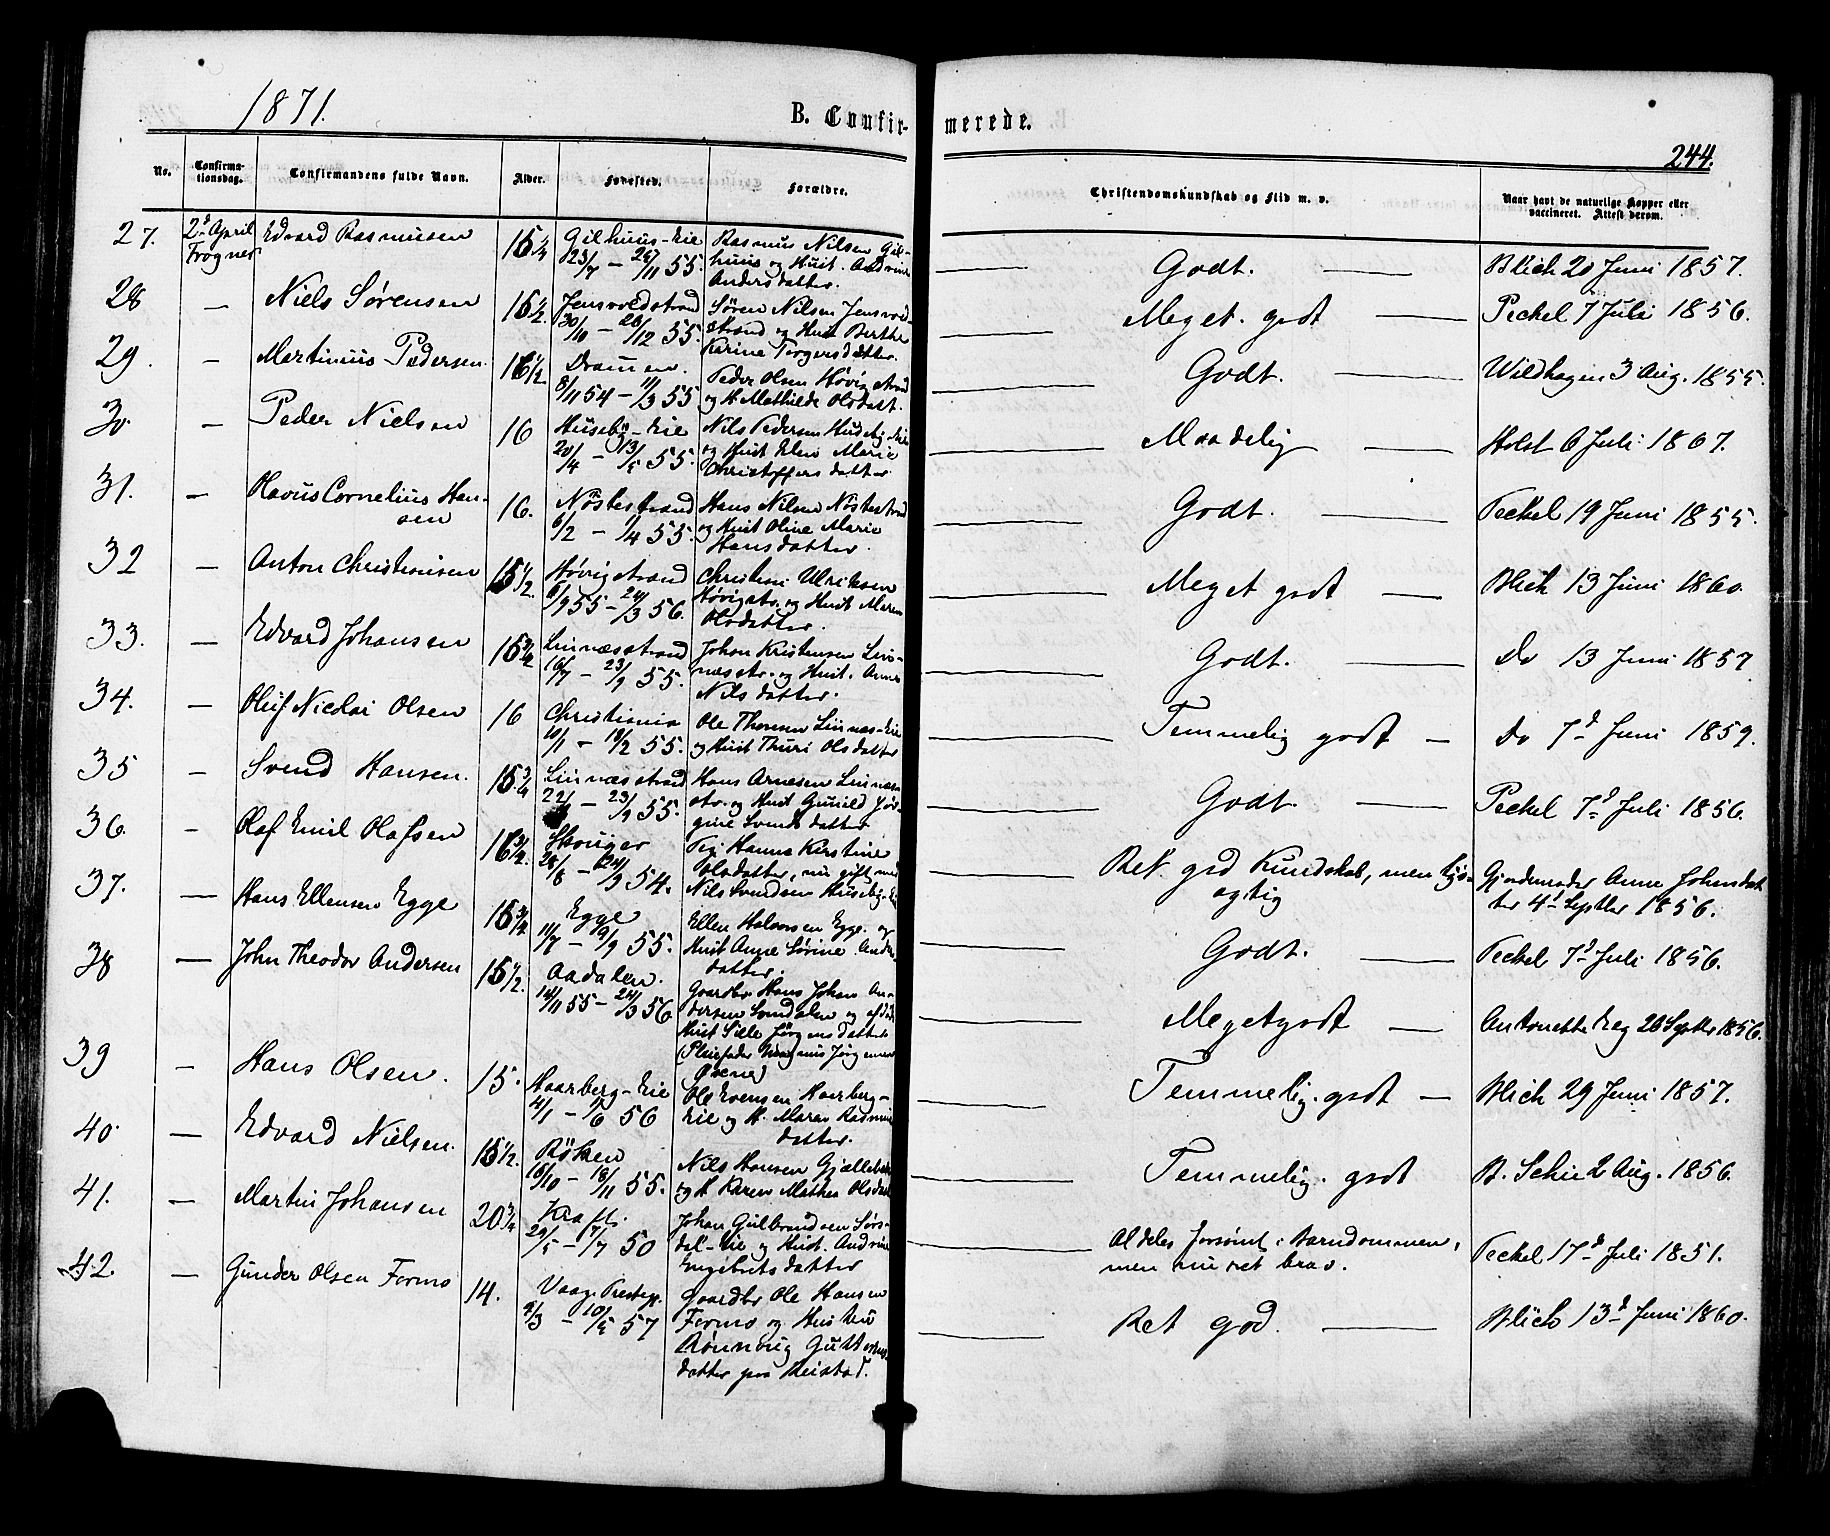 1871.
B. Confirmerede.
244.
No.
Confirmationsdag.
Confirmandens fulde Navn.
Alder.
Fødested.
Forældre.
Christendomskundskab og Flid m. v.
Naar havt de naturlige Kopper eller
vaccineret. Attest derom.
27. 2d April Edvard Rasmusen 15 1/4 Gilhuus-Eie Rasmus Nilsen Gil-
Frogner 23/7 — 26/11 55. huus og Hust. Andrine
Andersdatter. — Godt. — Blich 20 Juni 1857.
28 — Niels Sørensen 15 1/2. Jensvoldstrand Søren Nilsen Jensvold-
30/10 — 26/12 55. strand og Hust Berthe
Karine Torgersdatter. — Meget. godt — Peckel 7 Juli 1856.
29. — Martinius Pedersen. 16 1/2. Dramen. Peder Olsen Høvigstrand
8/11 54 — 11/3 55 og H Mathilde Olsdatt. — Godt. — Wildhagen 3 Aug. 1855.
30. — Peder Nielsen 16 Huseby-Eie Nils Pedersen Huseby-Eie
20/4 — 13/5 55. og Hust Elen Marie
Christoffersdatter — Maadelig — Holst 6 Juli 1867.
31. — Olavus Cornelius Han-
sen 16. Nøstestrand Hans Nilsen Nøstestrand
6/2 — 1/4 55. og Hust Oline Marie
Hansdatter. — Godt. — Peckel 19 Juni 1855.
32 — Anton Christiansen 15 1/2. Høvigstrand Christian Ulriksen
6/9 55 — 24/3 56. Høvigstr. og Hust Maren
Olsdatter. — Meget godt — Blich 13 Juni 1860.
33. — Edvard Johansen 15 3/4 Linnæsstrand Johan Kristensen Lin-
16/7 — 23/9 55. næsstr. og Hust. Anne
Nilsdatter. — Godt. — Do 13 Juni 1857
34. — Oluf Nicolai Olsen 16 Christiania Ole Thoresen Linnæs-Eie
10/1 — 18/2 55. og Hust Thuri Olsdatter — Temmelig godt — Do 7d Juni 1859.
35 — Svend Hansen. 15 3/4 Linnæsstrand Hans Arnesen Linnæs-
22/7 — 23/9 55. str. og Hust Gunild Jør-
gine Svendsdatter — Godt. — Peckel 7d Juli 1856.
36. — Olaf Emil Olafsen 16 3/4. Skouger Pig. Hanna Kirstine
28/8 — 24/9 54. Olsdatter, nu gift med
Nils Svendsen Huseby-Eie — Ret god Kundskab, men
agtig Gjordemoder Anne Johansdat
ter 4d Septbr 1856.
37. — Hans Ellensen Egge 15 3/4 Egge Ellen Halvorsen Egge. og
11/7 — 9/9 55. Hust Anne Sørine Anders
datter. — Godt. — Peckel 7d Juli 1856.
38 — John Theodor Andersen 15 1/2. Aadalen. Gaardbr Hans Johan An-
14/11 55 — 24/3 56 dersen og afdøde
Hust Sille Jørgensdatter
(Pleiefader Jørgensen
— Megetgodt — Antonette Eeg 20 Septbr 1856.
39 — Hans Olsen. 15. Haarberg-Eie Ole Evensen Haarberg-
4/1 — 1/6 56 Eie og H. Maren Rasmus
datter. — Temmelig. godt — Blich 29 Juni 1857.
40. — Edvard Nielsen. 15 1/2. Røken Nils Hansen Gjællebæk
16/10 — 18/11 55. og H Karen Mathea Olsdatt — Temmelig. godt B. Schie 2 Aug. 1856.
41. — Martin Johansen 20 3/4 Johan Gulbrandsen Sørs-
29/5 — 17/7 50 dal-Eie og Hust. Andrine
Engebretsdatter — Aldeles forsømt i Barndommen,
men nu ret brav. Peckel 17d Juli 1851.
42. — Gunder Olsen Formo 14. Vaage Prestegj. Gaardbr Ole Hansen
9/3 — 10/5 57 Formo og Hustru
Rønnoug Guttorms-
datter paa Reistad. — Ret god. — Blich 13d Juni 1860.